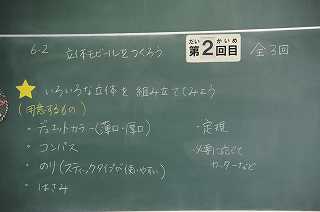 6-2 立体モビールをつくろう 第2回目 全3回
だい かいめ
いろいろな立体を組み立ててみよう
(用意するもの)
・デュエットカラー(薄口・厚口)
・コンパス
・のり(スティックタイプが使いやすい)
・はさみ
・定規
・必要に応じて
カッターなど